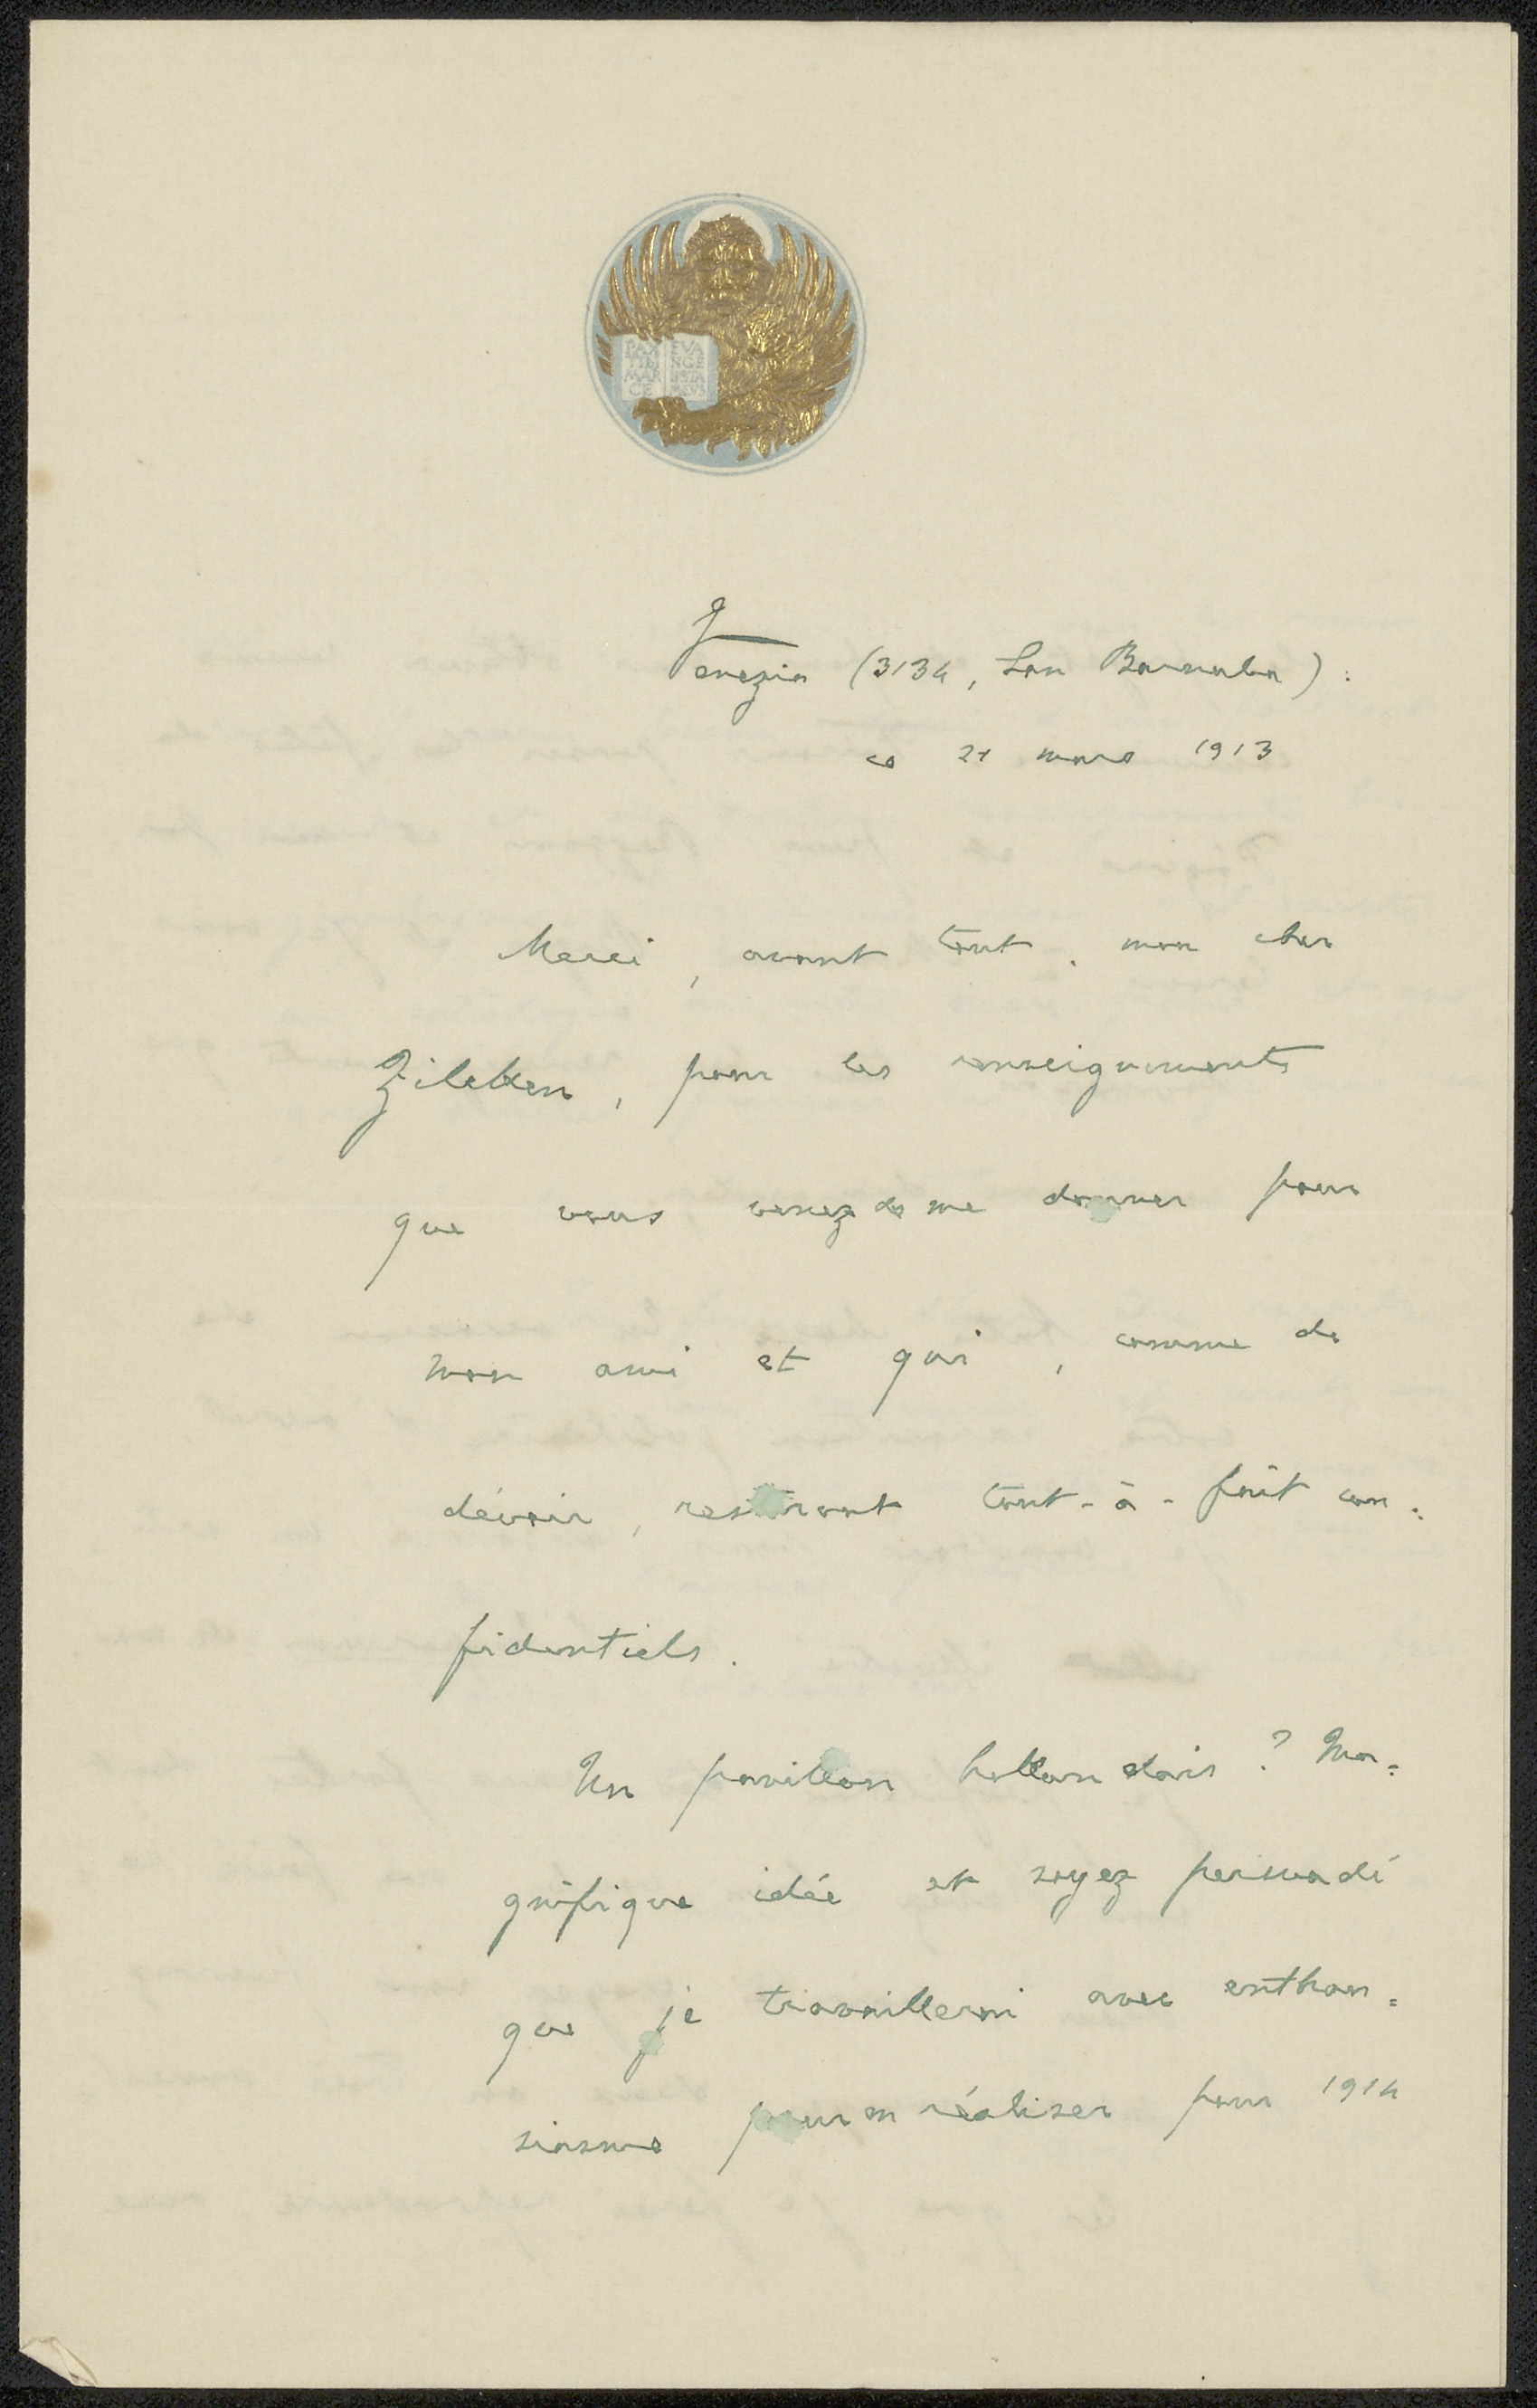 PAX EVA
TIBI NGE
MAR LISTA
CE MEVS
Venezia (3134, San Barnaba) :
ce 21 mars 1913
Merci, avant tout, mon cher
Zilcken, pour les renseignements
que vous venez de me donner pour
mon ami et qui, comme de
dévoir, resteront tout-à-fait con=
fidentiels.
Un pavillon hollandais? Ma=
gnifique idée et soyez persuadé
que je travaillerai avec enthou=
siasme pour en réaliser pour 1914